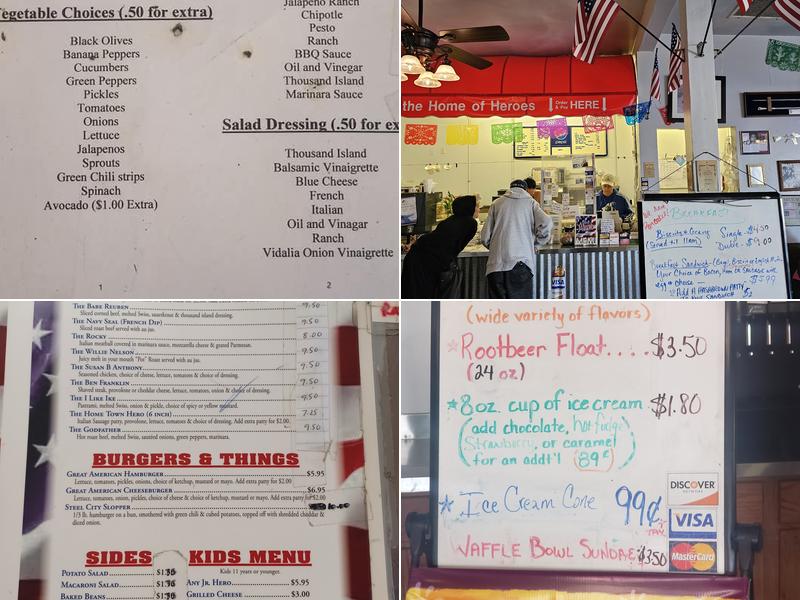 Vegetable Choices (.50 for extra)
Black Olives
Banana Peppers
Cucumbers
Green Peppers
Pickles
Tomatoes
Onions
Lettuce
Jalapenos
Sprouts
Green Chili strips
Spinach
Avocado ($1.00 Extra)
1
Jalapeno Ranch
Chipotle
Pesto
Ranch
BBQ Sauce
Oil and Vinegar
Thousand Island
Marinara Sauce
Salad Dressing (.50 for ex
Thousand Island
Balsamic Vinaigrette
Blue Cheese
French
Italian
Oil and Vinagar
Ranch
Vidalia Onion Vinaigrette
2
the Home of Heroes
Order & Pay HERE!
BREAKFAST
Biscuits & Gravy
(Served til 11am)
Single - $4.50
Double - $9.00
Your Choice of Bacon, Ham or Sausage with
egg & cheese
$5.99
THE BABE REUBEN 9.50
Sliced corned beef, melted Swiss, sauerkraut & thousand island dressing.
THE NAVY SEAL (FRENCH DIP) 9.50
Sliced roast beef served with au jus.
THE ROCKY 8.00
Italian meatball covered in marinara sauce, mozzarella cheese & grated Parmesan.
THE WILLIE NELSON 9.50
Juicy melt in your mouth "Pot" Roast served with au jus.
THE SUSAN B ANTHONY 9.50
Seasoned chicken, choice of cheese, lettuce, tomatoes & choice of dressing.
THE BEN FRANKLIN 7.50
Shaved steak, provolone or cheddar cheese, lettuce, tomatoes, onion & choice of dressing.
THE I LIKE IKE 9.50
Pastrami, melted Swiss, onion & pickle, choice of spicy or yellow mustard.
THE HOME TOWN HERO (6 INCH) 7.25
Italian Sausage patty, provolone, lettuce, tomatoes & choice of dressing. Add extra patty for $2.00.
THE GODFATHER 9.50
Hot roast beef, melted Swiss, sautéed onions, green peppers, marinara.
BURGERS & THINGS
GREAT AMERICAN HAMBURGER $5.95
Lettuce, tomatoes, pickles, onions, choice of ketchup, mustard or mayo. Add extra patty for $2.00.
GREAT AMERICAN CHEESEBURGER $6.95
Lettuce, tomatoes, onion, pickles, choice of cheese & choice of ketchup, mustard or mayo. Add extra patty for $2.00
STEEL CITY SLOPPER
1/3 lb. hamburger on a bun, smothered with green chili & cubed potatoes, topped off with shredded cheddar &
diced onion.
SIDES
POTATO SALAD
MACARONI SALAD
BAKED BEANS
KIDS MENU
Kids 11 years or younger.
ANY JR. HERO $5.95
GRILLED CHEESE $3.00
(wide variety of flavors)
Rootbeer Float.... $3.50
(24 oz)
8oz. cup of ice cream $1.80
(add chocolate, hot fudge,
Strawberry, or caramel
for an addt'l 89¢)
Ice Cream Cone 99¢
+ TAX
WAFFLE BOWL SUNDAE $3.50
DISCOVER
NETWORK
VISA
MasterCard